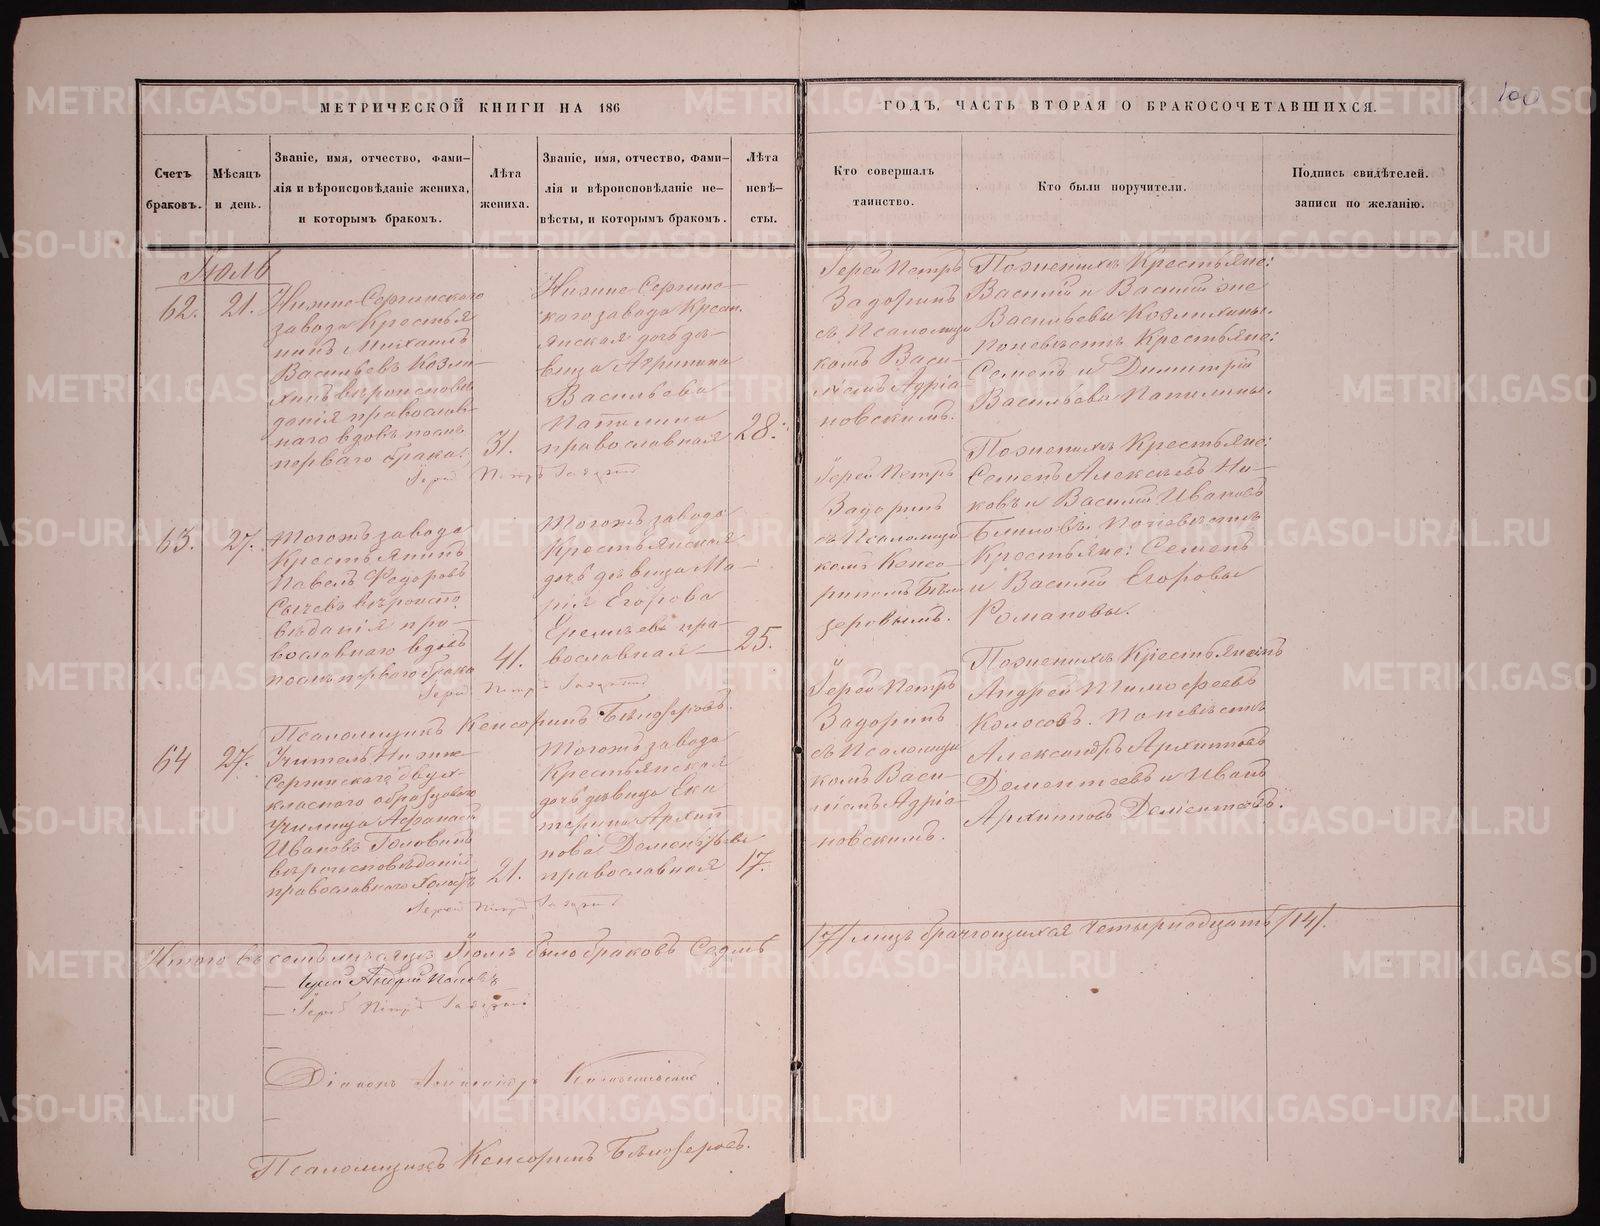 МЕТРИЧЕСКОЙ КНИГИ НА 186
ГОДЪ, ЧАСТЬ ВТОРАЯ О БРАКОСОЧЕТАВШИХСЯ.
100
Счетъ
браковъ.
Мѣсяцъ
и день.
Званіе, имя, отчество, фами-
лія и вѣроисповѣданіе жениха,
и которымъ бракомъ.
Лѣта
жениха.
Званіе, имя, отчество, фами-
лія и вѣроисповѣданіе не-
вѣсты, и которымъ бракомъ.
Лѣта
невѣ-
сты.
Кто совершалъ
таинство.
Кто были поручители.
Подпись свидѣтелей.
записи по желанію.
Іюль
62.
21.
Нижне-Сергинскаго
завода Крестья
нинъ Михаилъ
Васильевъ Козли-
хинъ вѣроисповѣ
данія православ-
наго вдовъ послѣ
перваго брака.
31.
Нижне-Сергин-
скаго завода Крест.
янская дочь дѣ-
вица Агрипина
Васильева
Папилина
православная
28.
Іерей Петръ
Задоринъ
съ Псаломщи
комъ Васи-
ліемъ Адріа
новскимъ.
По женихѣ Крестьяне:
Василій и Василій же
Васильевы Козлихины.
По невѣстѣ Крестьяне:
Семенъ и Димитрій
Васильевы Папилины.
Іерей Петръ Задоринъ
63.
27.
Тогожъ завода
Крестьянинъ
Павелъ Федоровъ
Сычевъ вѣроиспо
вѣданія пра-
вославнаго вдовъ
послѣ перваго брака
41.
Тогожъ завода
Крестьянская
дочь дѣвица Ма-
рія Егорова
Еремѣева пра-
вославная
25.
Іерей Петръ
Задоринъ
съ Псаломщи
комъ Кенсо-
риномъ Бѣло
зеровымъ.
По женихѣ Крестьяне:
Семенъ Алексѣевъ Ни-
ковъ и Василій Ивановъ
Блиновъ. По невѣстѣ
Крестьяне: Семенъ
и Василій Егоровы
Романовы.
Іерей Петръ Задоринъ
Псаломщикъ Кенсоринъ Бѣлозеровъ.
64
27.
Учитель Нижне-
Сергинскаго двух-
класнаго образцоваго
Училища Афанасій
Ивановъ Головинъ
вѣроисповѣданія
православнаго холостъ
21.
Тогожъ завода
Крестьянская
дочь дѣвица Ека
терина Архип
пова Дементьева
православная
17.
Іерей Петръ
Задоринъ
съ Псаломщи
комъ Васи-
ліемъ Адріа-
новскимъ.
По женихѣ Крестьянинъ
Андрей Тимофеевъ
Колосовъ. По невѣстѣ
Александръ Архипповъ
Дементьевъ и Иванъ
Архипповъ Дементьевъ.
Іерей Петръ Задоринъ
Итого въ семъ мѣсяцѣ Іюлѣ было браковъ Седмь
/7/ лицъ брачущихся Четырнадцать /14/.
Іерей Андрей Поповъ
Іерей Петръ Задоринъ
Діаконъ Александръ
Псаломщикъ Кенсоринъ Бѣлозеровъ.
METRIKI.GASO-URAL.RU